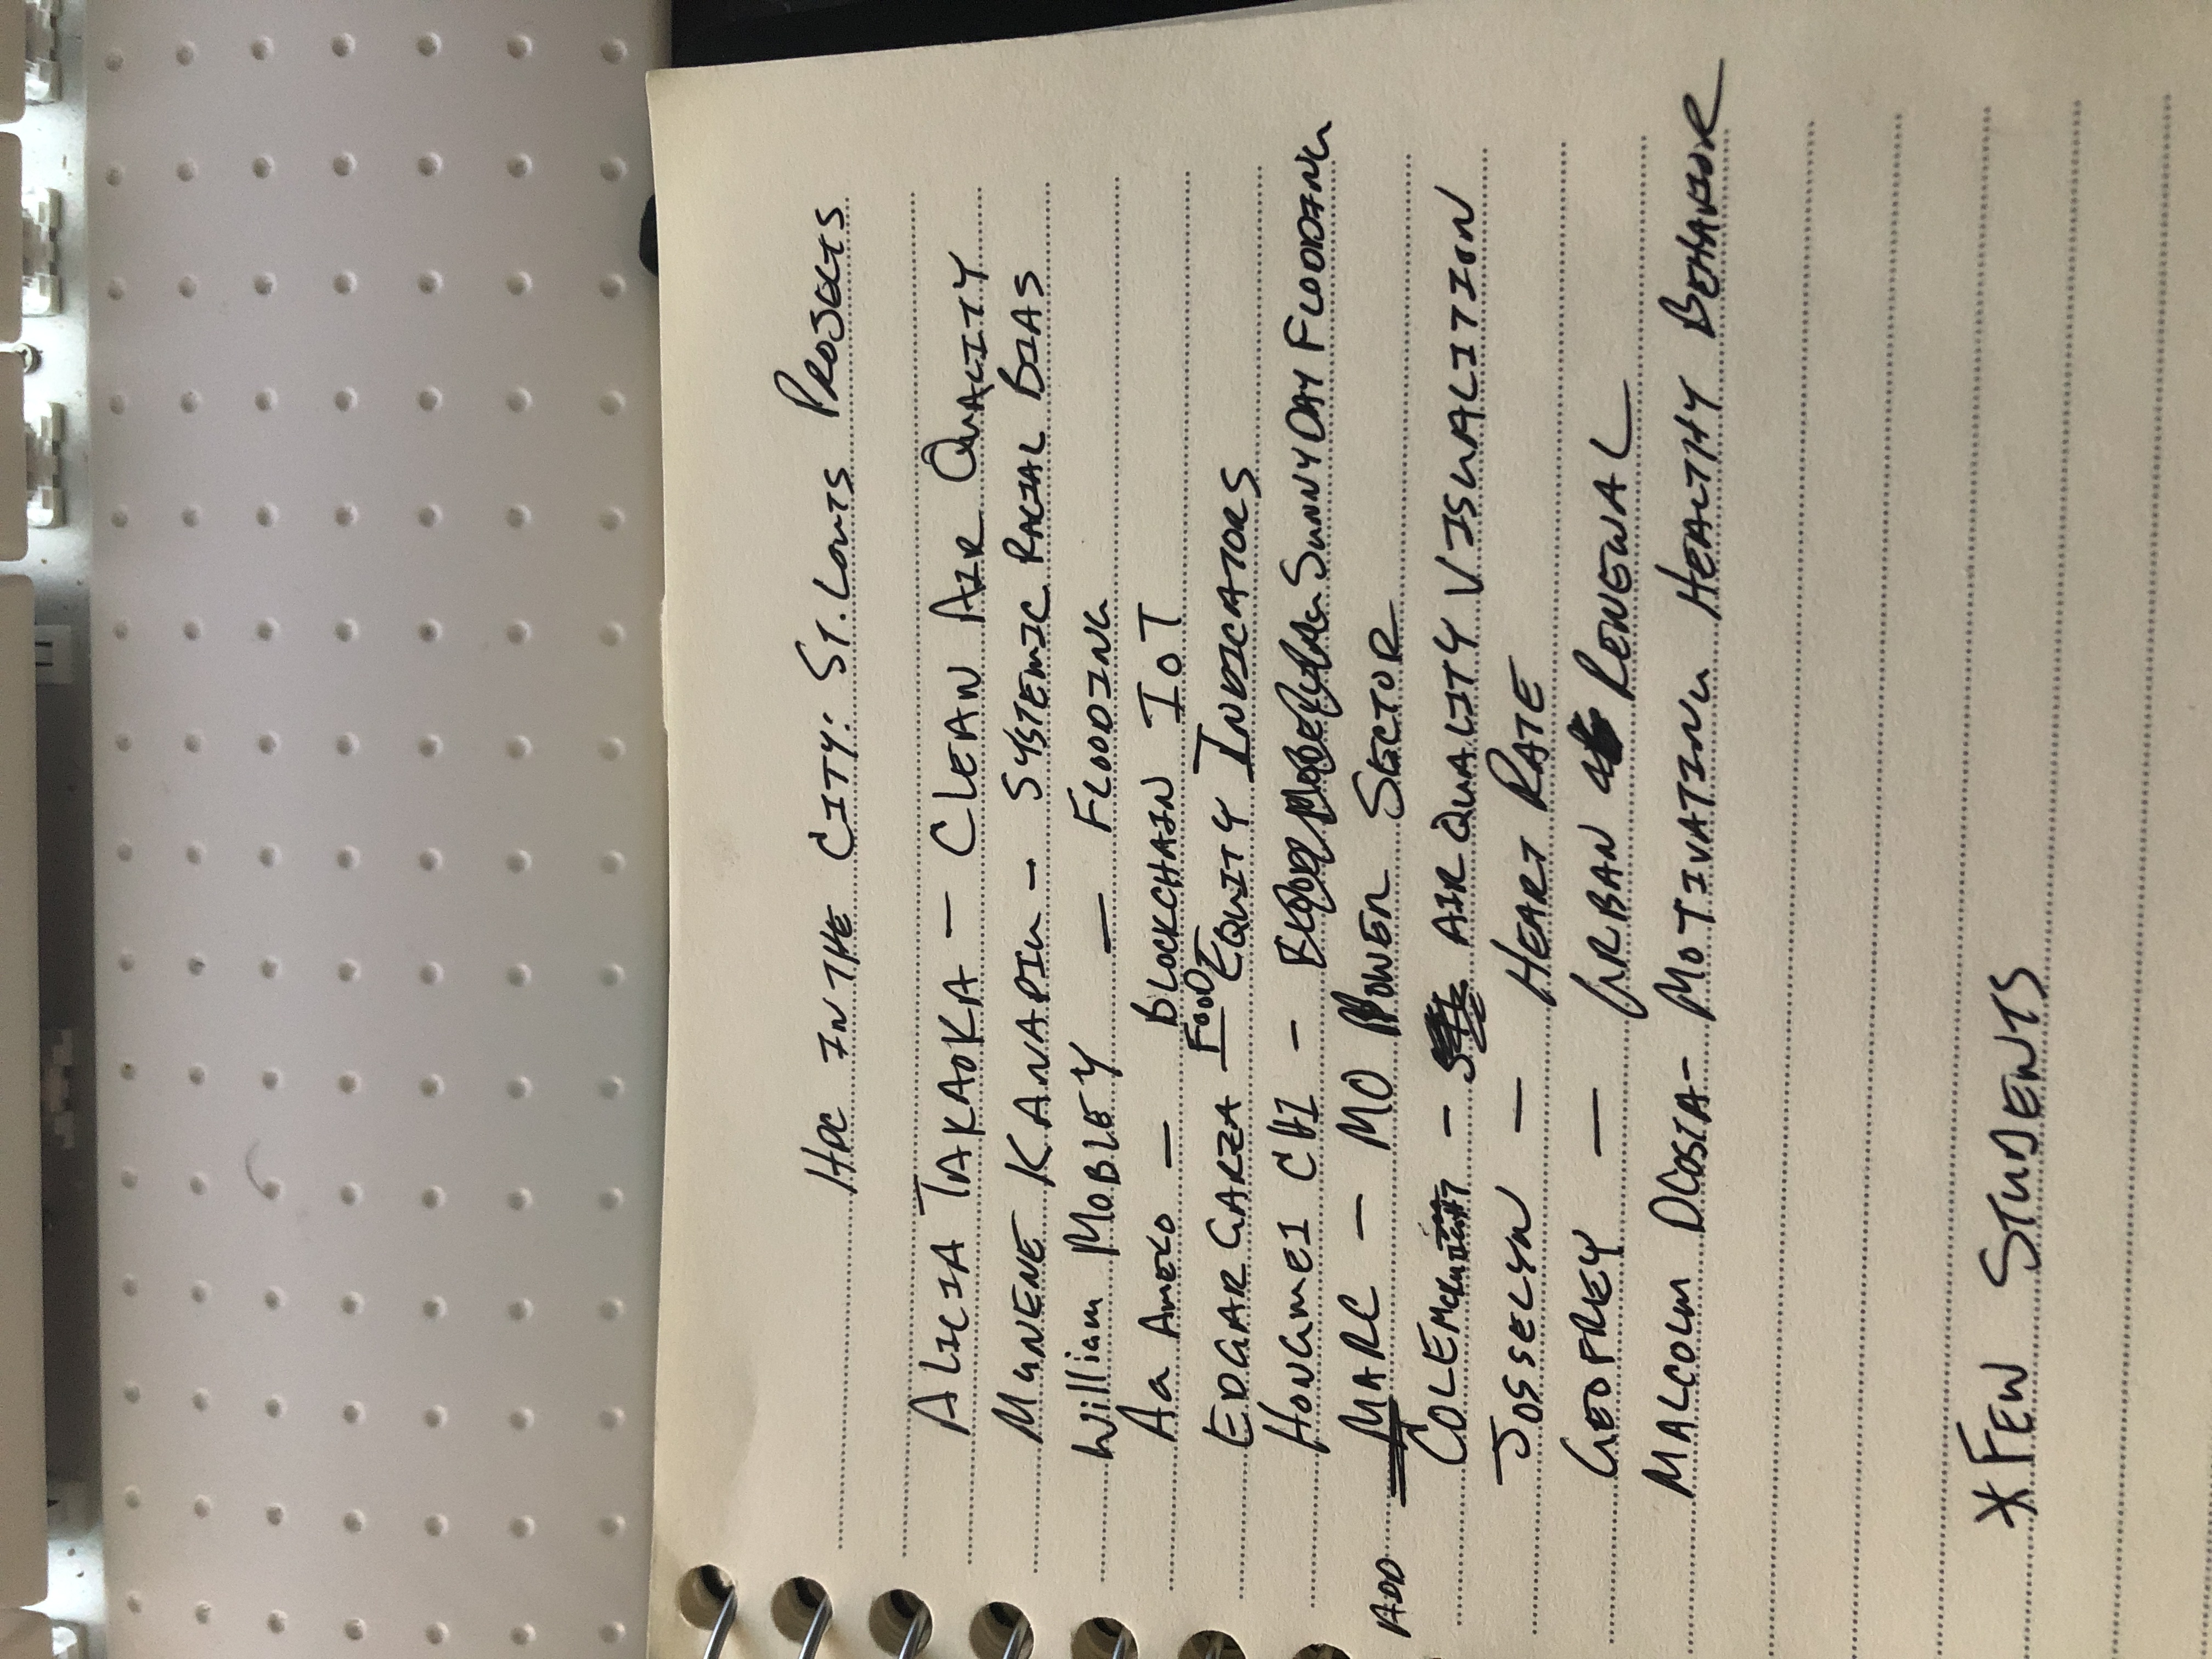 HPC IN THE CITY: ST. LOUIS PROJECTS
ALICIA TAKAOKA - CLEAN AIR QUALITY
MUNENE KANAPIU - SYSTEMIC RACIAL BIAS
William MOBLEY - FLOODING
Aa AMEKO - BLOCKCHAIN IOT
EDGAR GARZA - FOOD EQUITY INDICATORS
HONGMEI CHI - SUNNY DAY FLOODING
ADD MARC - MO POWER SECTOR
COLE - AIR QUALITY VISUALITION
JOSSELYN - HEART RATE
GEOFREY - URBAN RENEWAL
MALCOLM DCOSTA - MOTIVATING HEALTHY BEHAVIOR
*FEW STUDENTS